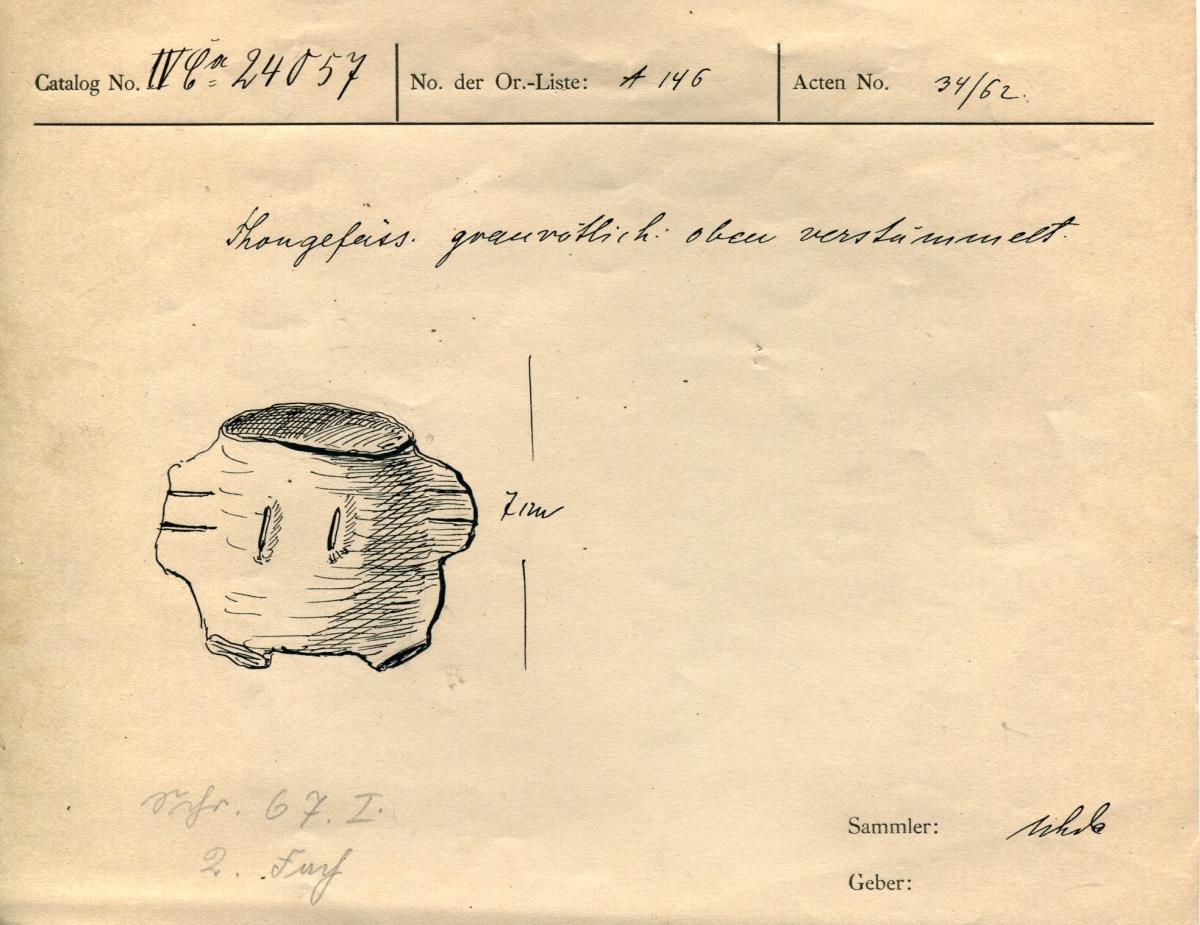 Catalog No. IV Ca 24057
No. der Or.-Liste: A 146
Acten No. 34/62.
Thongefäss. graurötlich: oben verstümmelt.
7 cm
Schr. 67. I.
2. Fach
Sammler: Uhde
Geber: